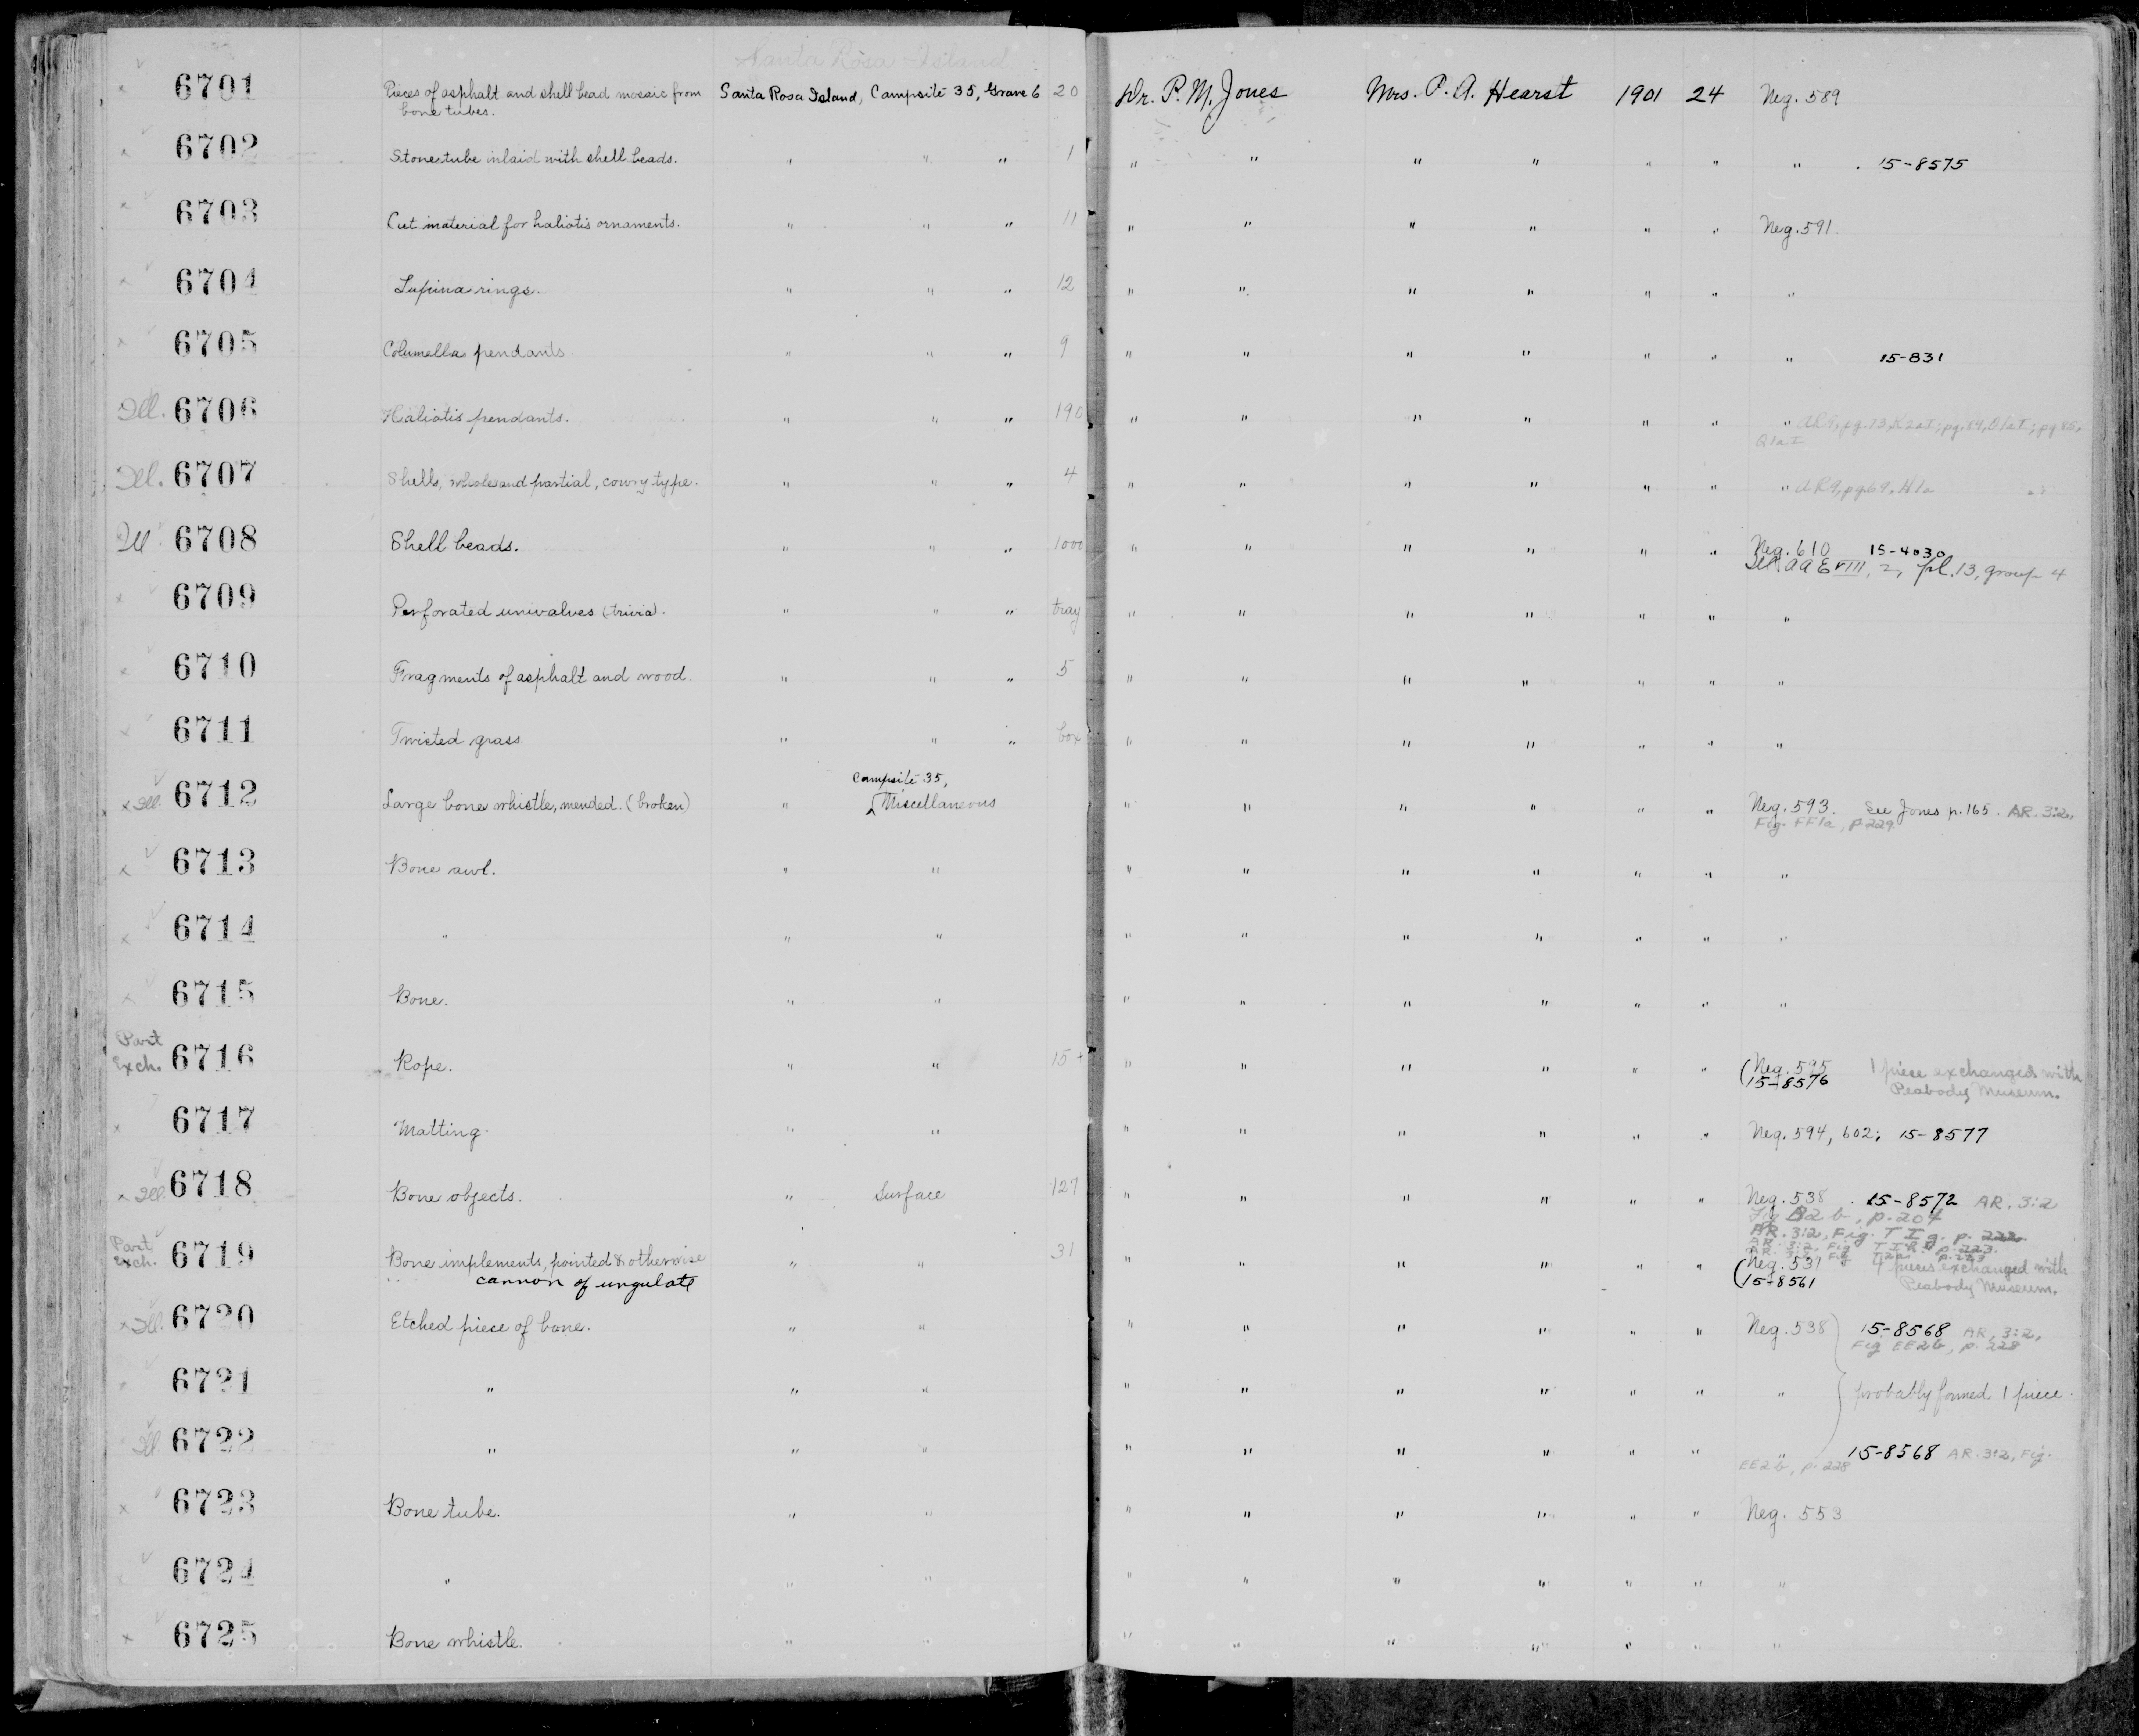 Santa Rosa Island
6701 Pieces of asphalt and shell bead mosaic from Santa Rosa Island, Campsite 35, Grave 6 20 Dr. P. M. Jones Mrs. P. A. Hearst 1901 24 Neg. 589
bone tubes.
6702 Stone tube inlaid with shell beads. " " " 1 " " " " " " " 15-8575
6703 Cut material for haliotis ornaments. " " " 11 " " " " " " Neg. 591.
6704 rings. " " " 12 " " " " " " "
6705 Columella pendants. " " " 9 " " " " " " " 15-831
Ill. 6706 Haliotis pendants. " " " 190 " " " " " " " AR9, pg. 73, K2aI; pg.
Q1aI
Ill. 6707 Shells, whole and partial, cowry type. " " " 4 " " " " " " " AR9, pg 69, H1a
Ill 6708 Shell beads. " " " 1000 " " " " " " Neg. 610 15-4030
AAE VIII, 2, pl. 13, group 4
6709 Perforated univalves (trivia). " " " tray " " " " " " "
6710 Fragments of asphalt and wood. " " " 5 " " " " " " "
6711 Twisted grass " " " box " " " " " " "
Campsite 35,
x Ill. 6712 Large bone whistle, mended. (broken) " Miscellaneous " " " " " " Neg. 593. See Jones p. 165. AR. 3:2,
Fig. FF1a, p 229
x 6713 Bone awl. " " " " " " " " "
x 6714 " " " " " " " " " "
x 6715 Bone. " " " " " " " " "
Part
Exch. 6716 Rope. " " 15+ " " " " " " (Neg. 595 1 piece exchanged with
(15-8576 Peabody Museum.
x 6717 Matting. " " " " " " " " Neg. 594, 602; 15-8577
x Ill. 6718 Bone objects. " Surface 127 " " " " " " Neg. 538. 15-8572 AR. 3:2
Fig B2b, p. 204
AR. 3:2, Fig. T I g. p. 222
AR. 3:2, Fig T I p. 223
Part
Exch. 6719 Bone implements, pointed & otherwise " " 31 " " " " " " (Neg. 531 pieces exchanged with
cannon of ungulate (15-8561 Peabody Museum.
x Ill. 6720 Etched piece of bone. " " " " " " " " Neg. 538 15-8568 AR, 3:2,
Fig EE2b, p. 228
6721 " " " " " " " " " " probably formed 1 piece.
Ill. 6722 " " " " " " " " " " 15-8568 AR. 3:2, Fig.
EE2b, p. 228
x 6723 Bone tube. " " " " " " " " Neg. 553
6724 " " " " " " " " " "
x 6725 Bone whistle. " " " " " " " " "